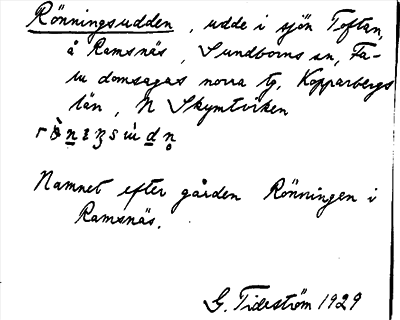 Rönningsudden, udde i sjön Toftan,
å Ramsnäs, Sundborns sn, Fa-
lu domsagas norra tg, Kopparbergs
län, N Skymtviken
Namnet efter gården Rönningen i
Ramsnäs.
G. Tideström 1929